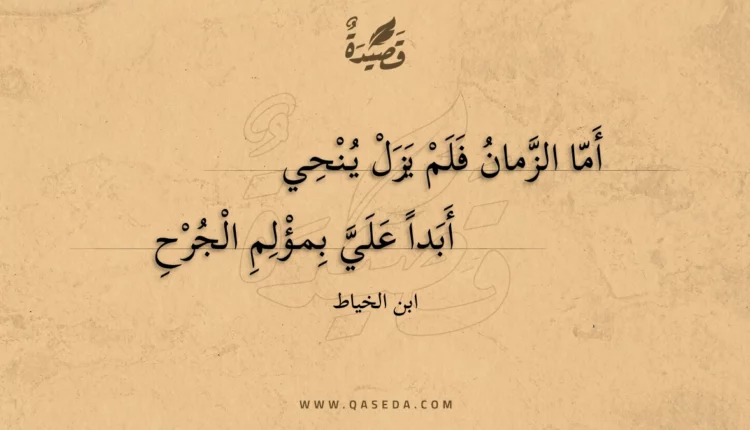 قَصِيدَةٌ
أَمّا الزَّمانُ فَلَمْ يَزَلْ يُنْحِي
أَبَداً عَلَيَّ بِمؤْلِمِ الْجُرْحِ
ابن الخياط
WWW.QASEDA.COM